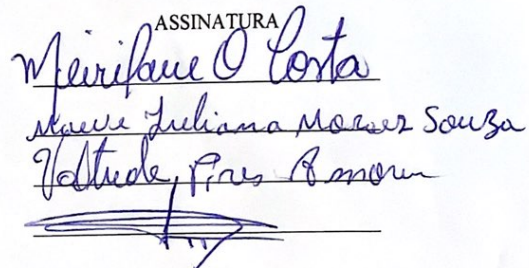 ASSINATURA
Meirifane O Costa
Juliana Moraes Souza
Pires Amorim